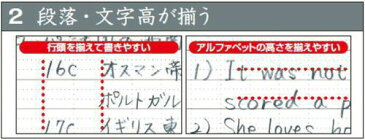 2 段落・文字高が揃う
行頭を揃えて書きやすい
16c オスマン帝
ポルトガル
17c イギリス東
アルファベットの高さを揃えやすい
1) It was not
scored a p
2) She loves ho